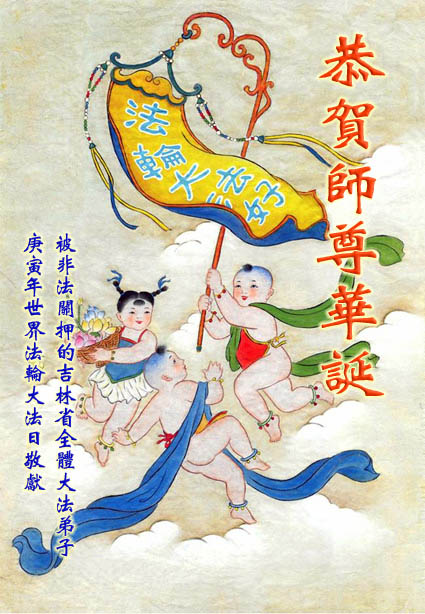 恭賀師尊華誕
法輪大法好
被非法關押的吉林省全體大法弟子
庚寅年世界法輪大法日敬獻